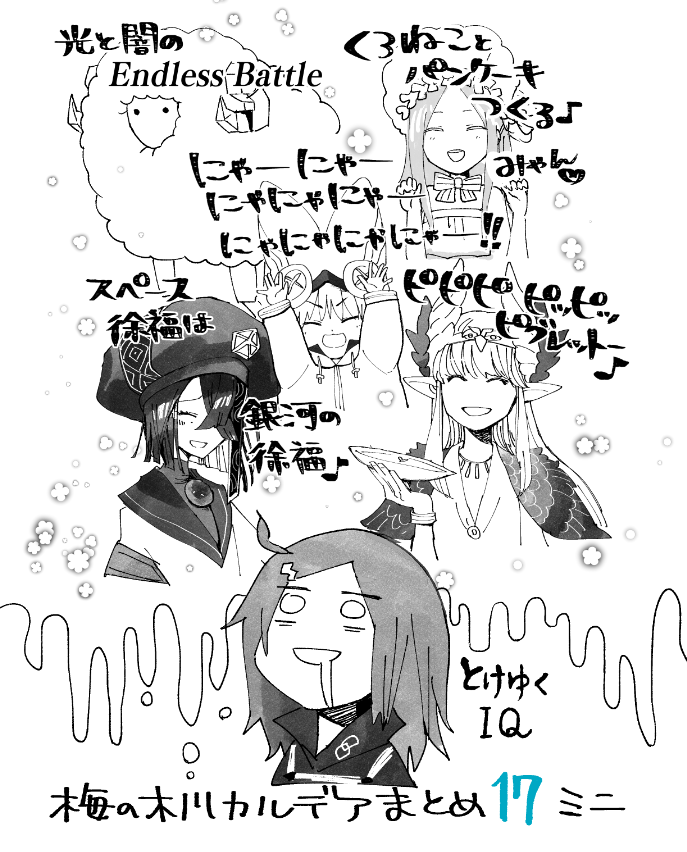 光と闇の
Endless Battle
くろねこと
パンケーキ
つくる♪
にゃーにゃー
にゃにゃにゃー
にゃにゃにゃにゃー!!
みゃん♥
スペース
徐福は
銀河の
徐福♪
ピピピ ピッピッ
ピブレットー♪
とけゆく
IQ
梅の木川カルデアまとめ17 ミニ